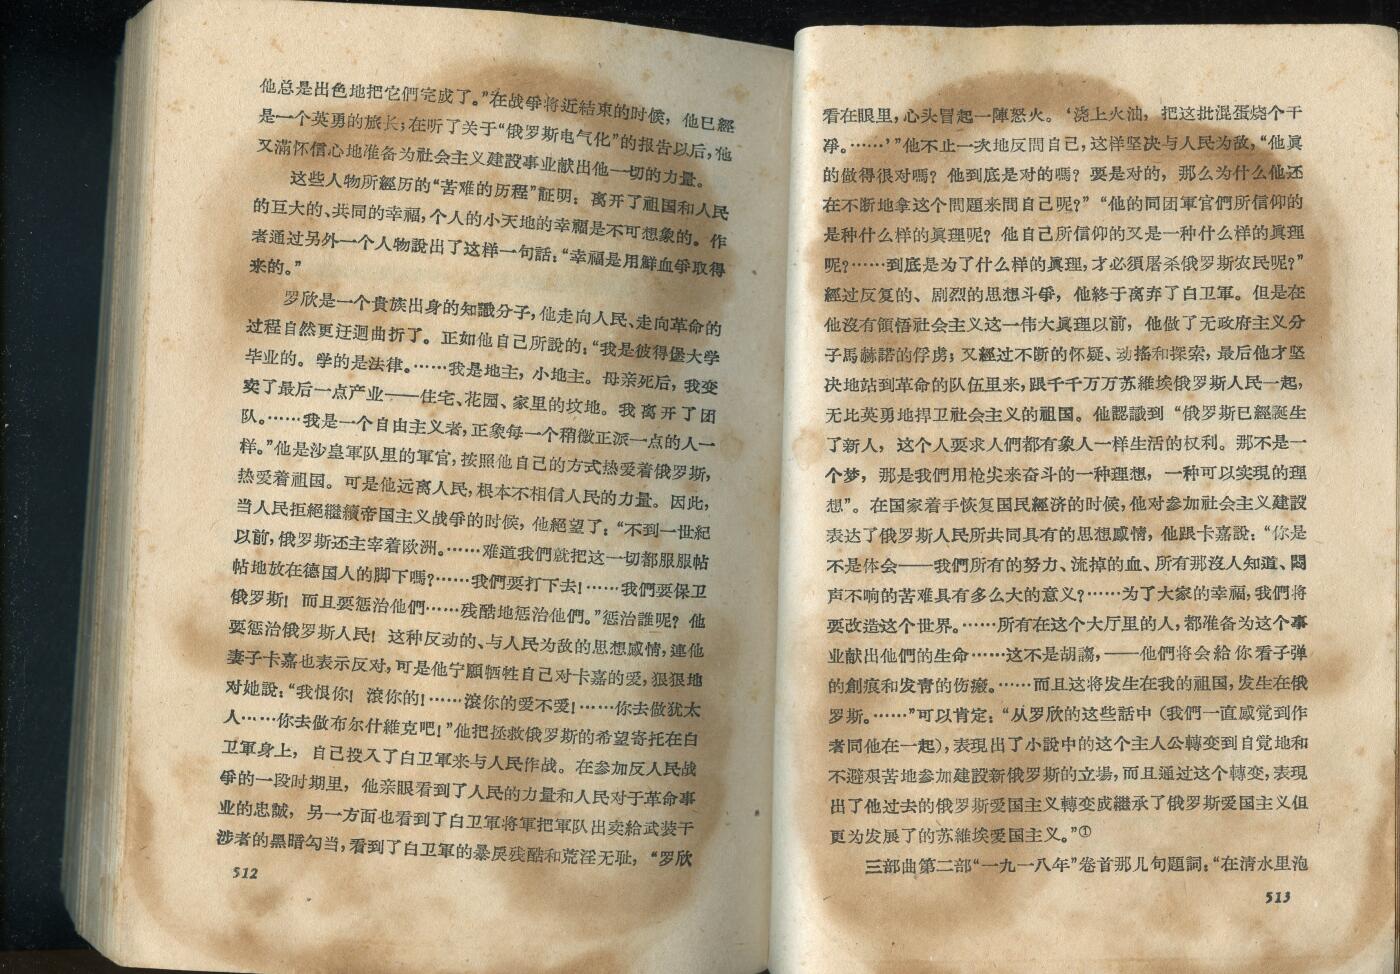 他总是出色地把它們完成了。”在战爭将近結束的时候，他已經
是一个英勇的旅长；在听了关于“俄罗斯电气化”的报告以后，他
又滿怀信心地准备为社会主义建設事业献出他一切的力量。
这些人物所經历的“苦难的历程”証明：离开了祖国和人民
的巨大的、共同的幸福，个人的小天地的幸福是不可想象的。作
者通过另外一个人物說出了这样一句話：“幸福是用鮮血爭取得
来的。”
罗欣是一个貴族出身的知識分子，他走向人民、走向革命的
过程自然更迂迴曲折了。正如他自己所說的：“我是彼得堡大学
毕业的。学的是法律。……我是地主，小地主。母亲死后，我变
卖了最后一点产业——住宅、花园、家里的坟地。我离开了团
队。……我是一个自由主义者，正象每一个稍微正派一点的人一
样。”他是沙皇軍队里的軍官，按照他自己的方式热爱着俄罗斯，
热爱着祖国。可是他远离人民，根本不相信人民的力量。因此，
当人民拒絕繼續帝国主义战爭的时候，他絕望了：“不到一世紀
以前，俄罗斯还主宰着欧洲。……难道我們就把这一切都服服帖
帖地放在德国人的脚下嗎？……我們要打下去！……我們要保卫
俄罗斯！而且要惩治他們……残酷地惩治他們。”惩治誰呢？他
要惩治俄罗斯人民！这种反动的、与人民为敌的思想感情，連他
妻子卡嘉也表示反对，可是他宁願牺牲自己对卡嘉的爱，狠狠地
对她說：“我恨你！滾你的！……滾你的爱不爱！……你去做犹太
人……你去做布尔什維克吧！”他把拯救俄罗斯的希望寄托在白
卫軍身上，自己投入了白卫軍来与人民作战。在参加反人民战
爭的一段时期里，他亲眼看到了人民的力量和人民对于革命事
业的忠誠，另一方面也看到了白卫軍将軍把軍队出卖給武装干
涉者的黑暗勾当，看到了白卫軍的暴戾残酷和荒淫无耻，“罗欣
512
看在眼里，心头冒起一陣怒火。‘浇上火油，把这批混蛋烧个干
淨。……’”他不止一次地反問自己，这样坚决与人民为敌，“他眞
的做得很对嗎？他到底是对的嗎？要是对的，那么为什么他还
在不断地拿这个問題来問自己呢？”“他的同团軍官們所信仰的
是种什么样的眞理呢？他自己所信仰的又是一种什么样的眞理
呢？……到底是为了什么样的眞理，才必須屠杀俄罗斯农民呢？”
經过反复的、剧烈的思想斗爭，他終于离弃了白卫軍。但是在
他沒有領悟社会主义这一伟大眞理以前，他做了无政府主义分
子馬赫諾的俘虏；又經过不断的怀疑、动搖和探索，最后他才坚
决地站到革命的队伍里来，跟千千万万苏維埃俄罗斯人民一起，
无比英勇地捍卫社会主义的祖国。他認識到“俄罗斯已經誕生
了新人，这个人要求人們都有象人一样生活的权利。那不是一
个梦，那是我們用枪尖来奋斗的一种理想，一种可以实現的理
想”。在国家着手恢复国民經济的时候，他对参加社会主义建設
表达了俄罗斯人民所共同具有的思想感情，他跟卡嘉說：“你是
不是体会——我們所有的努力、流掉的血、所有那沒人知道、悶
声不响的苦难具有多么大的意义？……为了大家的幸福，我們将
要改造这个世界。……所有在这个大厅里的人，都准备为这个事
业献出他們的生命……这不是胡謅，——他們将会給你看子弹
的創痕和发青的伤癜。……而且这将发生在我的祖国，发生在俄
罗斯。……”可以肯定：“从罗欣的这些話中（我們一直感觉到作
者同他在一起），表現出了小說中的这个主人公轉变到自觉地和
不避艰苦地参加建設新俄罗斯的立場，而且通过这个轉变，表現
出了他过去的俄罗斯爱国主义轉变成繼承了俄罗斯爱国主义但
更为发展了的苏維埃爱国主义。”①
三部曲第二部“一九一八年”卷首那几句題詞：“在清水里泡
513